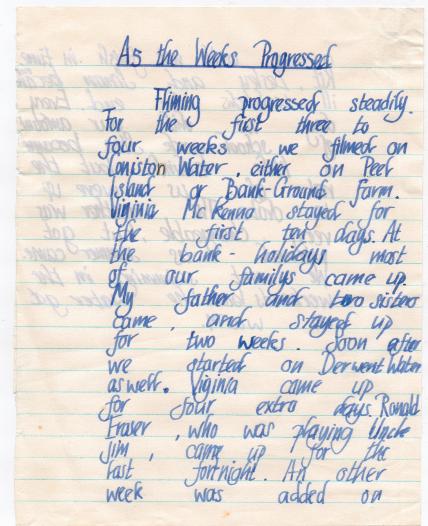 As the Weeks Progressed
Fliming progressed steadily.
For the first three to
four weeks we filmed on
Coniston Water, either on Peel
Island or Bank-Ground Farm.
Viginia McKenna stayed for
the first ten days. At
the bank-holidays most
of our familys came up.
My father and two sisters
came, and stayed up
for two weeks. Soon after
we started on Derwent Water
as well. Viginia came up
for four extra days. Ronald
Fraser, who was playing Uncle
Jim, came up for the
last fortnight. An other
week was added on